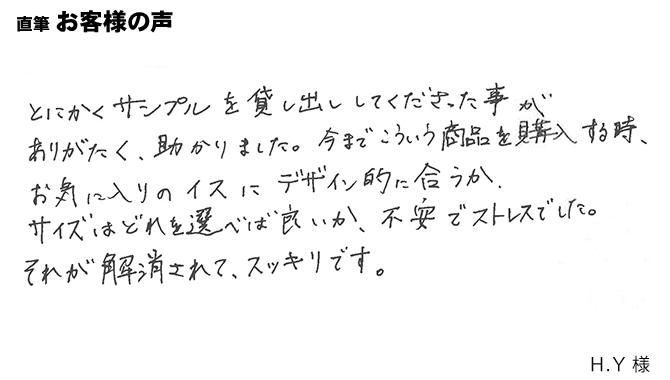 直筆 お客様の声
とにかくサンプルを貸し出ししてくださった事が
ありがたく、助かりました。今までこういう商品を購入する時、
お気に入りのイスにデザイン的に合うか、
サイズはどれを選べば良いか、不安でストレスでした。
それが解消されて、スッキリです。
H.Y 様